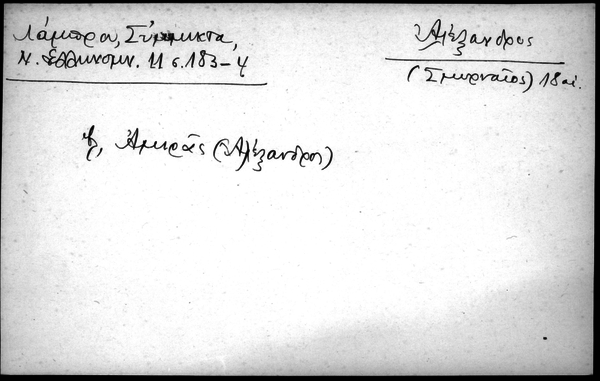 Λάμπρου, Σύμμικτα,
Ν. Ἑλληνομν. 11 σ. 183-4
Ἀλέξανδρος
(Σμυρναῖος) 18 αἰ.
βλ. Ἀμιρᾶς (Ἀλέξανδρος)